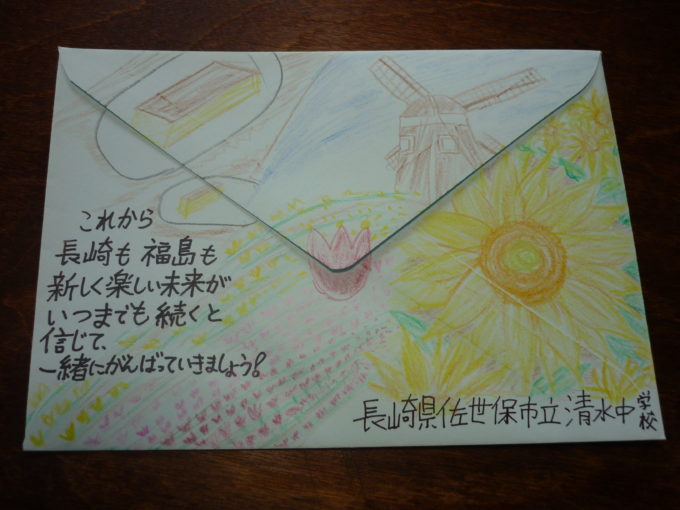 これから
長崎も福島も
新しく楽しい未来が
いつまでも続くと
信じて、
一緒にがんばっていきましょう!
長崎県佐世保市立清水中学校